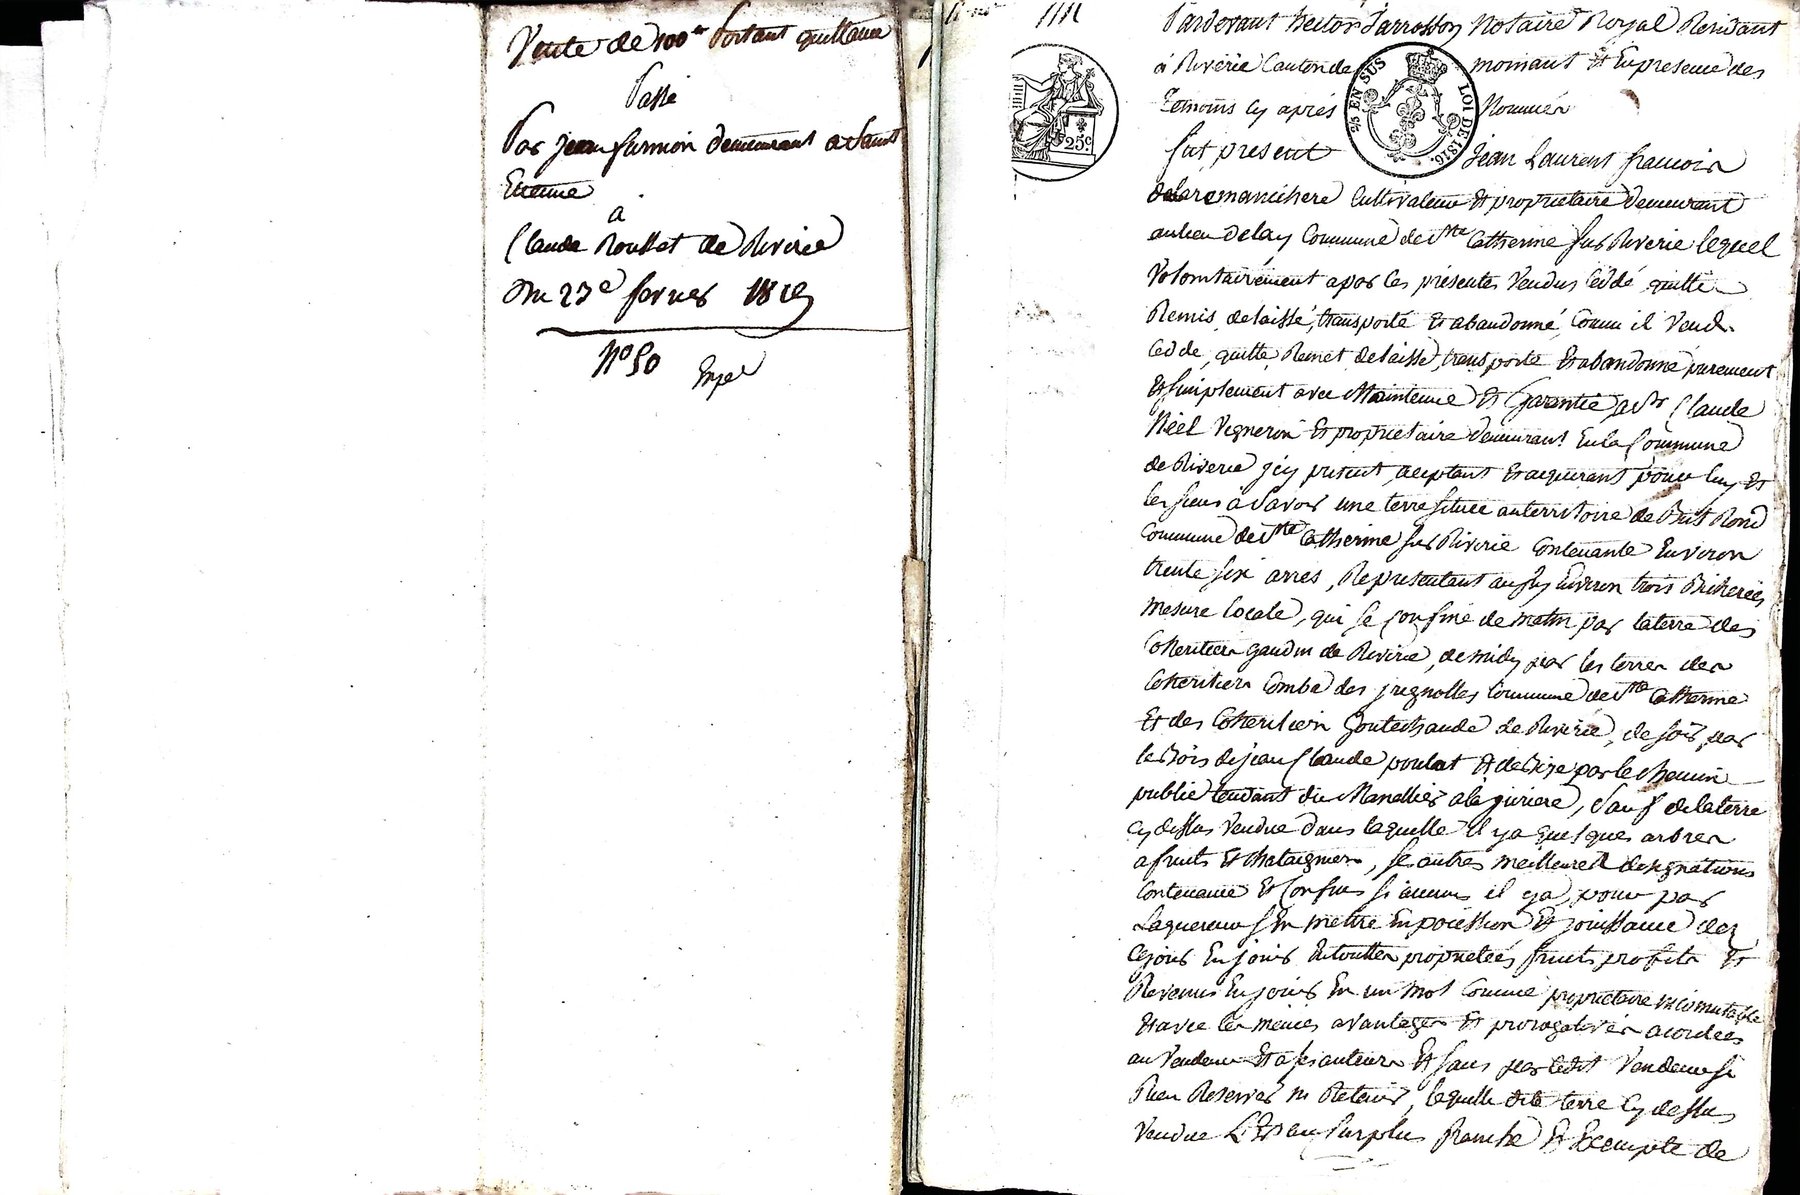 Vente de 100 tt portant quittance
Passé
Par jean furnion demeurant a Saint
Etienne
a
Claude Rousset de Riverie
Du 23e fevrier 1819
N° 50
1111
Pardevant hector Jarrosson Notaire Royal Residant
à Riverie Canton de mornant Et En presence des
Temoins cy après Nommés
fut present Jean Laurent francois
delaromanchere Cultivateur Et proprietaire demeurant
au lieu delay Commune de Ste Catherine sur Riverie lequel
Volontairement a par les présentes Vendus Cédé quitté
Remis, delaissé, transporté Et abandonné, Comme il Vend
Cedde, quitte, Remet delaisse, transporte Et abandonne purement
Et simplement avec Maintenue Et Garantie, a Sr Claude
Néel Vigneron Et proprietaire demeurant En la Commune
de Riverie icy present, aceptant Et aquerant pour luy Et
les siens à Savoir une terre située au territoire de But Rond
Commune de Ste Catherine sur Riverie Contenante Environ
trente six arres, Representant aussy Environ trois Bicherées
mesure locale, qui se Confine de matin par la terre des
Coheritiers gaudin de Riverie, de midy par les terres des
Coheritiers Combe des Commune de Ste Catherine
Et des Coheritiers Goutechaude de Riverie, de soir par
le Bois de jean Claude poulat Et de Bize par le Chemin
public tendant du a la, Sauf de la terre
cy dessus Vendue dans laquelle il y a quelques arbres
a fruits Et chataigniers, ses autres meilleures designations
Contenance Et Confins si aucuns il y a, pour par
Laquereur s'En mettre En pocession Et jouissance des
ce jour En jouir En touttes proprietées fruits profits Et
Revenus En jouir En un mot Comme proprietaire incomutable
Et avec les mêmes avantages Et prerogatives acordées
au Vendeur Et a ses auteurs Et sans par ledit Vendeur si
Rien Reserver ni Retenir, laquelle dite terre cy dessus
Vendue Est au surplus franche Et Exempte de
25 c.
2/5 EN SUS
LOI DE 1816.